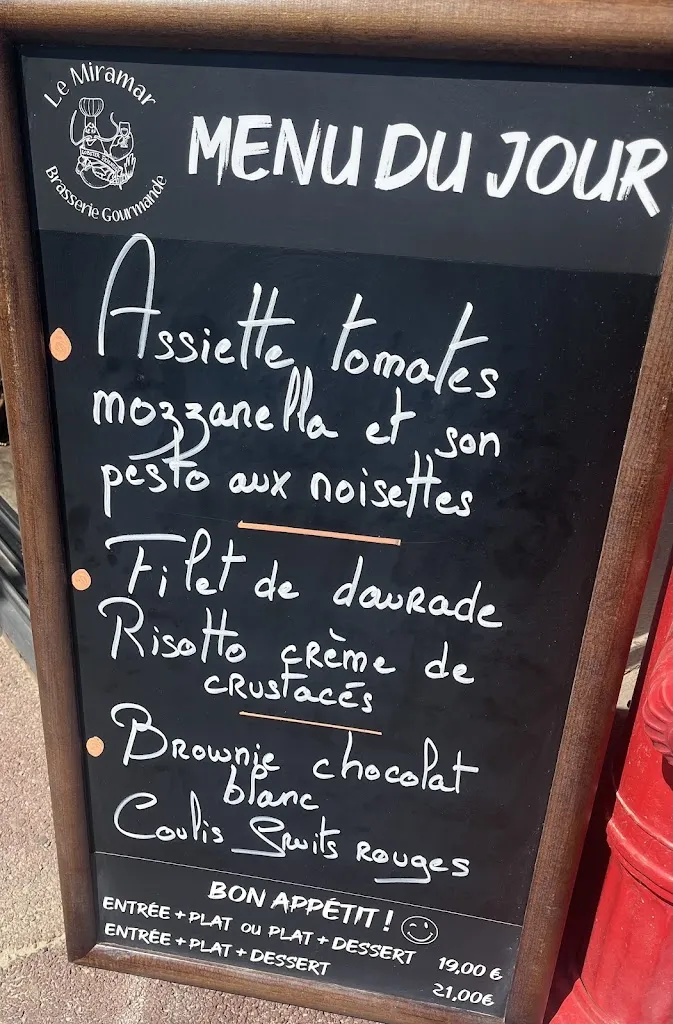 Le Miramar
Brasserie Gourmande
MENU DU JOUR
Assiette tomates
mozzanella et son
pesto aux noisettes
Filet de daurade
Risotto crème de
crustacés
Brownie chocolat
blanc
Coulis fruits rouges
BON APPÉTIT !
ENTRÉE + PLAT OU PLAT + DESSERT 19,00 €
ENTRÉE + PLAT + DESSERT 21,00€